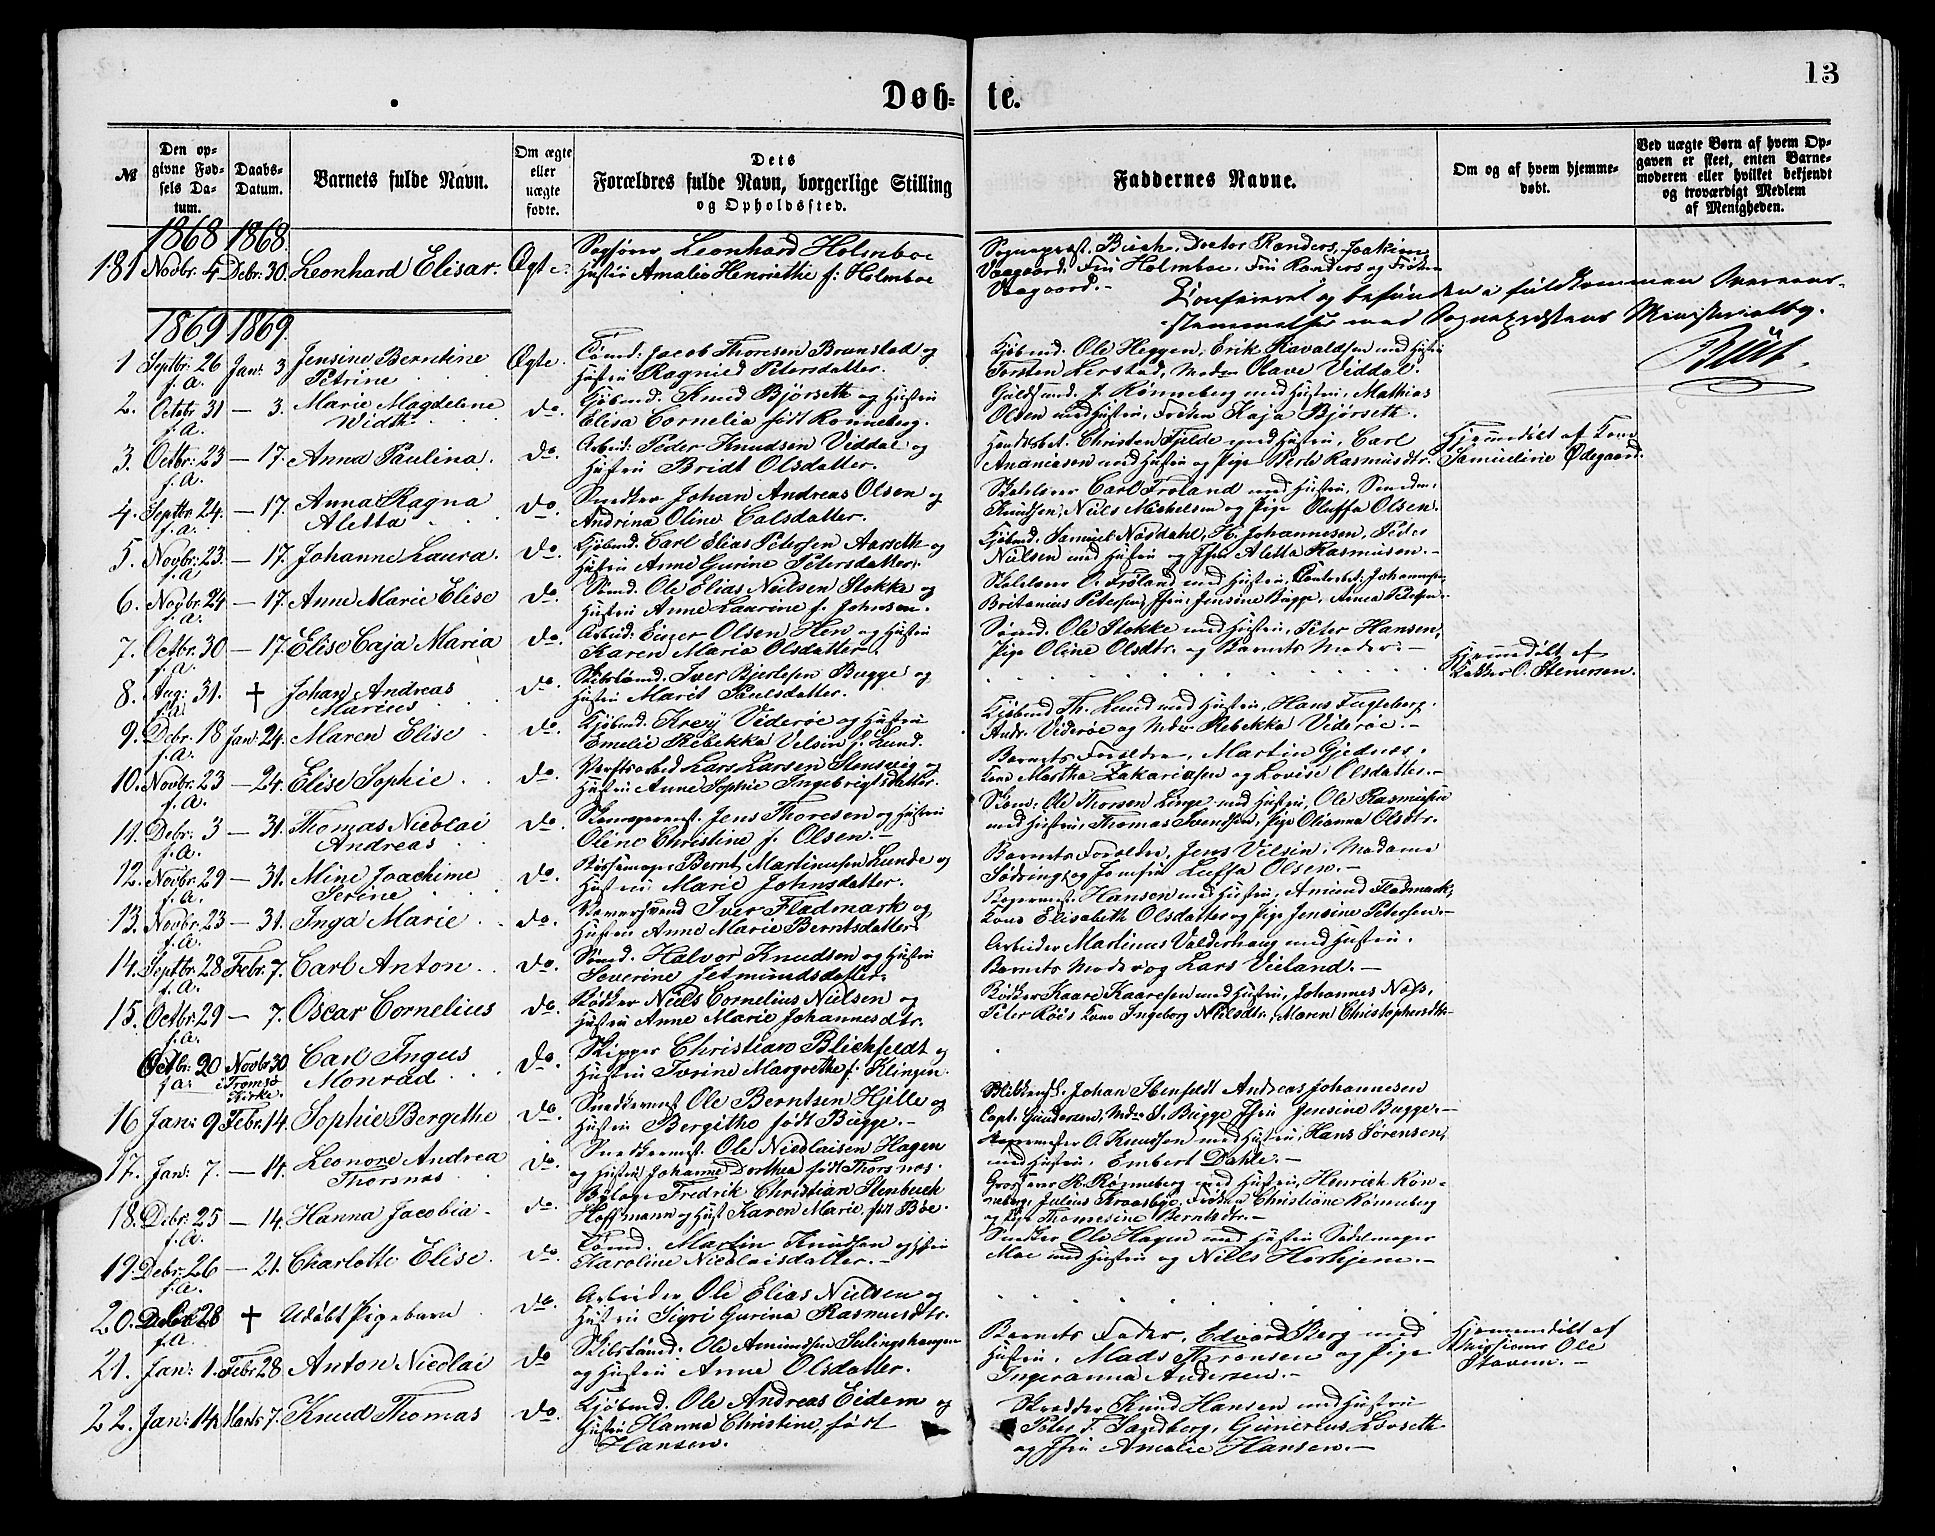 13
Døb- te.
№
Den op-
givne Fød-
sels Da-
tum.
Daabs-
Datum.
Barnets fulde Navn.
Om ægte
eller
uægte
fødte.
Dets
Forældres fulde Navn, borgerlige Stilling
og Opholdssted.
Faddernes Navne.
Om og af hvem hjemme-
døbt.
Ved uægte Børn af hvem Op-
gaven er skeet, enten Barne-
moderen eller hvilket bekjendt
og troværdigt Medlem
af Menigheden.
1868 1868
181 Novbr. 4 Debr. 30. Leonhard Elisar. Ægte. Sagfører Leonhard Holmboe
Hustru Amalie Henriethe f. Holmboe
Sognepræst Buch, Doctor Randers, Joakim
Vaagaard, Fru Holmboe, Fru Randers og Frøken
Vaagaard.-
Confereret og befunden i fuldkommen Overens-
stemmelse med Sognepræstens Ministerialbog.
Buch.
1869 1869
1 Septbr. 26 f.a. Jan: 3 Jensine Berntine
Petrine Ægte. Tømd: Jacob Thoresen Brunstad og
Hustru Ragnild Petersdatter.
Kjøbmd. Ole Heggen, Erik Havaldsen med Hustru
Torsten Lerstad, Mad. Olave Viddal.
2. Octobr. 31 f.a. — 3. Marie Magdelene
Width do. Gjøbmd. Knud Bjørseth og Hustru
Elisa Cornelia født Rønneberg.
Guldsmd. J. Rønneberg med Hustru, Mathias
Olsen med Hustru, Frøken Kaja Bjørseth.
3. Octbr: 23 f.a. — 17. Anna Paulina. do. Arbeid: Peder Knudsen Viddal og
Hustru Bridt Olsdatter.
Handelsbet. Christen Fjelde med Hustru, Carl
Ananiasen med Hustru og Pige Berte Rasmusdtr.
Hjemmedøbt af Kone
Samueline Ødegaard.
4. Septbr. 24. f.a. — 17. Anna Ragna
Aletta do. Snedker Johan Andreas Olsen og
Andrina Oline Calsdatter.
Skolelærer Carl Frøland med Hustru, Smedm.
Knudsen, Neils Mickelsen og Pige Oluffa Olsen.
5. Novbr: 23. f.a. — 17. Johanne Laura. do. Kjøbmd: Carl Elias Petersen Aarseth og
Hustru Anne Gurine Petersdatter.
Kjøbmd. Samuel Nøsdahl, H. Johannesen, Peder
Nielsen med Hustru og Jfru Aletta Rasmusen.-
6. Novbr. 24 f.a. — 17. Anne Marie Elise do. Sømd. Ole Elias Nielsen Stokke og
Hustru Anne Laurine f. Johnsen.
Skolelærer C. Frøland med Hustru, Johannesen
Britanius Petersen, Jfru Jensine Bugge, Anna Petersen.
7. Octbr. 30 f.a. — 17. Elise Caja Maria do. Arbeid: Einer Olsen Hen og Hustru
Karen Maria Olsdatter.
Sømd. Ole Stokke med Hustru, Peter Hansen,
Pige Oline Olsdtr. og Barnets Moder.-
8. Aug: 31. f.a. † Johan Andreas
Marius do. Skibstømd. Iver Bjerlesen Bugge og
Hustru Marit Paulsdatter.
Hjemmedøbt af
Kokker O. Stenersen.
9. Debr. 18 f.a. Jan: 24. Maren Elise do. Kjøbmd. Kreij Viderøe og Hustru
Emelie Rebekka Velsin f. Lund.
Kjøbmd Th. Lund med Hustru, Hans Fugleberg.
Andr. Viderøe og Mdm Rebekka Viderøe.-
10. Novbr. 23 f.a. — 24. Elise Sophie do. Værftsarbed Lars Larsen Stensvig og
Hustru Anne Sophie Ingebrigtsdatter.
Barnets Forældre, Martin Gjednæs.
Kone Martha Zakariasen og Lovise Olsdatter.-
11. Debr: 3 f.a. — 31. Thomas Nicolai
Andreas do. Skomagermst. Jens Thoresen og Hustru
Oline Christine f. Olsen.-
Skom: Ole Thorsen Linge med Hustru, Ole Rasmusen
med Hustru, Thomas Svendsen, Pige Olianna Olsdtr.
12. Novbr. 29 f.a. — 31. Mine Joachime
Serine do. Børsemager Bernt Martinusen Lunde og
Hustru Marie Johnsdatter.
Barnets Forældre, Jens Velsin, Madame
Sødring og Jomfru Luffa Olsen.-
13. Novbr. 23 f.a. — 31. Inga Marie do. Iver Fladmark og
Hustru Anne Marie Berntsdatter
Bagermst. Hansen med Hustru, Amund Fladmark,
Kone Elisabeth Olsdatter og Pige Jensine Petersen.-
14. Septbr. 28 f.a. Febr. 7. Carl Anton do. Sømd. Halvor Knudsen og Hustru
Severine Jetmundsdatter.
Arbeider Martinus Valderhaug med Hustru.
Barnets Moder og Lars Vieland.-
15. Octbr. 29 f.a. — 7. Oscar Cornelius do. Bødker Niels Cornelius Nielsen og
Hustru Anne Marie Johannesdtr.
Bødker Kaare Kaaresen med Hustru, Johannes Næss,
Peter Røe's Kone Ingeborg Nielsdtr., Maren Christophersdtr.
Octbr: 20 f.a. Novbr 30
i Tromsø
Kirke. Carl Ingus
Monrad do. Skipper Christian Blichfeldt og
Hustru Turine Margrethe f. Klingen.
16 Jan: 9 Febr. 14. Sophie Bergethe do. Snedkermst Ole Berntsen Hjelle og
Hustru Bergithe født Bugge.-
Blikkensl. Johan Ibenfeldt Andreas Johannesen
Capt. Gundersen, Mdm S. Bugge Jfru Jensine Bugge.-
17. Jan: 7. — 14. Leonore Andrea
Thorsnæs do. Snedkermst. Ole Nicolaisen Hagen
og Hustru Johanne Dorthea født Thorsnæs.
O. Knudsen med Hustru, Hans Sørensen,
med Hustru, Embert Dahle.-
18. Debr. 25 f.a. — 14. Hanna Jacobia - do. Bylæge Fredrik Christian Stenbuch
Hoffmann og Hust Karen Marie født Bøe.
Grosserer R. Rønneberg med Hustru, Henrick Røn-
neberg, Julius Kraasbye, Frøken Christiane Rønneberg
og Pige Thomesine Berntsdtr.-
19. Debr. 26 f.a. — 21. Charlotte Elise. do. Tømd. Martin Knudsen og Hstru
Karoline Nicolaisdatter.-
Snedker Ole Hagen med Hustru Sadelmager
Moe med Hustru og Niels Horkjem.-
20. Debr. 28 f.a. † Udøbt Pigebarn do. Arbeider Ole Elias Nielsen og
Hustru Sigri Gurina Rasmusdtr.
21. Jan: 1. Febr 28 Anton Nicolai do Skibstømd. Ole Amundsen Sulingshaugen
og Hustru Anne Olsdatter.
Barnets Fader, Edvard Berg med
Hustru, Mads Thronsen og Pige
Ingeranna Andersen.-
Hjemmedøbt af
Ole
Staven.-
22. Jan: 14 Marts 7. Knud Thomas do. Kjøbmd. Ole Andreas Eidem og
Hustru Hanna Christine født
Hansen.
Skrædder Knud Hansen med Hustru
Peter T. Sandberg, Gunerius Lovseth
og Jfru Amalie Hansen.-